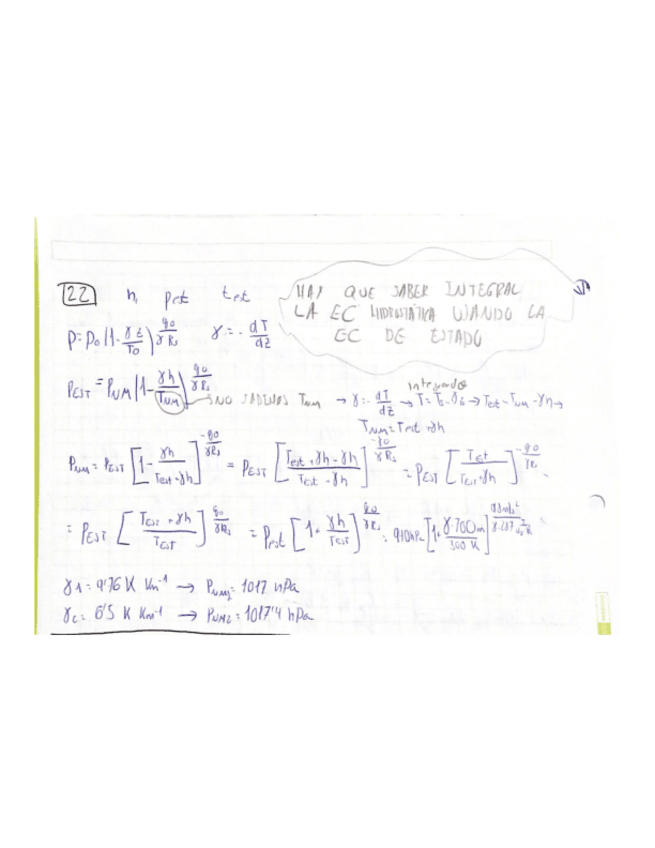 22 h, pest test
HAY QUE SABER INTEGRAL
LA EC HIDROSTÁTICA USANDO LA
EC DE ESTADO
P = P₀(1 - γz/T₀)^(g₀/γRₐ) γ = - dT/dz
P_EST = P_NM(1 - γh/T_NM)^(g₀/γRₐ) → NO SABEMOS T_NM → γ = - dT/dz → integrando T = T₀ - γz → T_est = T_NM - γh →
T_NM = T_est + γh
P_NM = P_EST [1 - γh/(T_est + γh)]^(-g₀/γRₐ) = P_EST [(T_est + γh - γh)/(T_est + γh)]^(-g₀/γRₐ) = P_EST [T_est/(T_est + γh)]^(-g₀/γRₐ)
= P_EST [(T_EST + γh)/T_EST]^(g₀/γRₐ) = P_est [1 + γh/T_EST]^(g₀/γRₐ) = 940 hPa [1 + γ·700m/300 K]
γ₁ = 9'76 K Km⁻¹ → P_NM1 = 1017 hPa
γ₂ = 6'5 K Km⁻¹ → P_NM2 = 1017'4 hPa